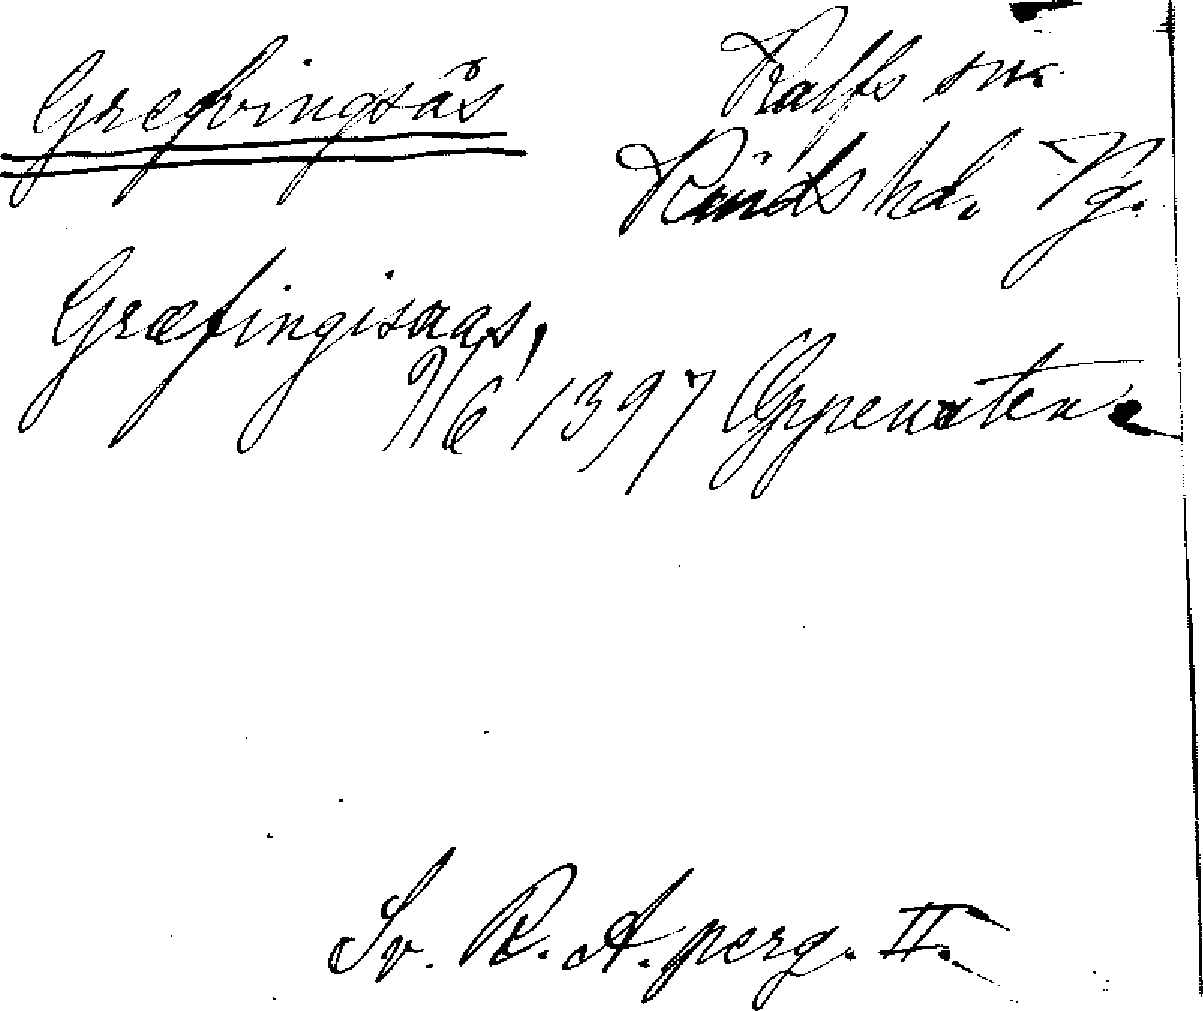 Grefvingsås
Kalfs sn.
Kinds hd. Vg.
Græfingisaas,
9/6 1397 Oppensten
Sv. R. A. perg. II.